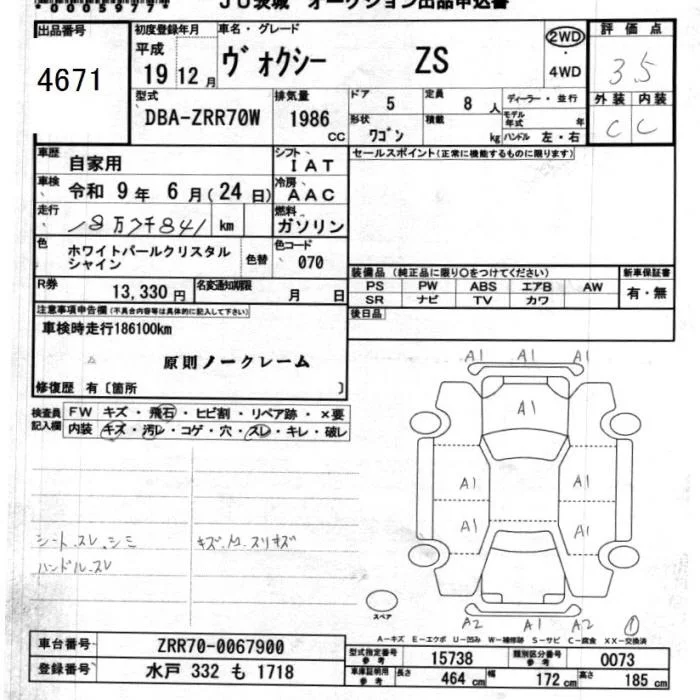 JU茨城 オークション出品申込書
出品番号
4671
初度登録年月
平成
19年 12月
車名・グレード
ヴォクシー ZS
2WD
・
4WD
評価点
3.5
外装 内装
C C
型式
DBA-ZRR70W
排気量
1986
cc
ドア
5
定員
8 人
形状
ワゴン
積載
kg
ディーラー・並行
モデル年式
年
ハンドル 左・右
車歴
自家用
車検
令和 9年 6月(24日)
走行
18万7千841 km
シフト
IAT
冷房
AAC
燃料
ガソリン
色
ホワイトパールクリスタル
シャイン
色替
色コード
070
R券
13,330円
名変通知期限
月 日
セールスポイント(正常に機能するものに限ります)
装備品 (純正品に限り○をつけてください)
PS PW ABS エアB AW
SR ナビ TV カワ
新車保証書
有・無
後日品
注意事項申告欄(不具合内容等は具体的に記入して下さい)
車検時走行186100km
原則ノークレーム
修復歴 有〔箇所 〕
検査員
記入欄
FW キズ・飛石・ヒビ割・リペア跡・×要
内装 キズ・汚レ・コゲ・穴・スレ・キレ・破レ
シート、スレ、シミ
ハンドル、スレ
A1 A1 A1
A1
A1 A1
A1 A1
A2 A1 A2
スペア
①
A-キズ E-エクボ U-凹み W-補修跡 S-サビ C-腐食 XX-交換済
車台番号
ZRR70-0067900
登録番号
水戸 332 も 1718
型式指定番号
参考
15738
類別区分番号
参考
0073
車庫証明用
参考
長さ
464 cm
幅
172 cm
高さ
185 cm